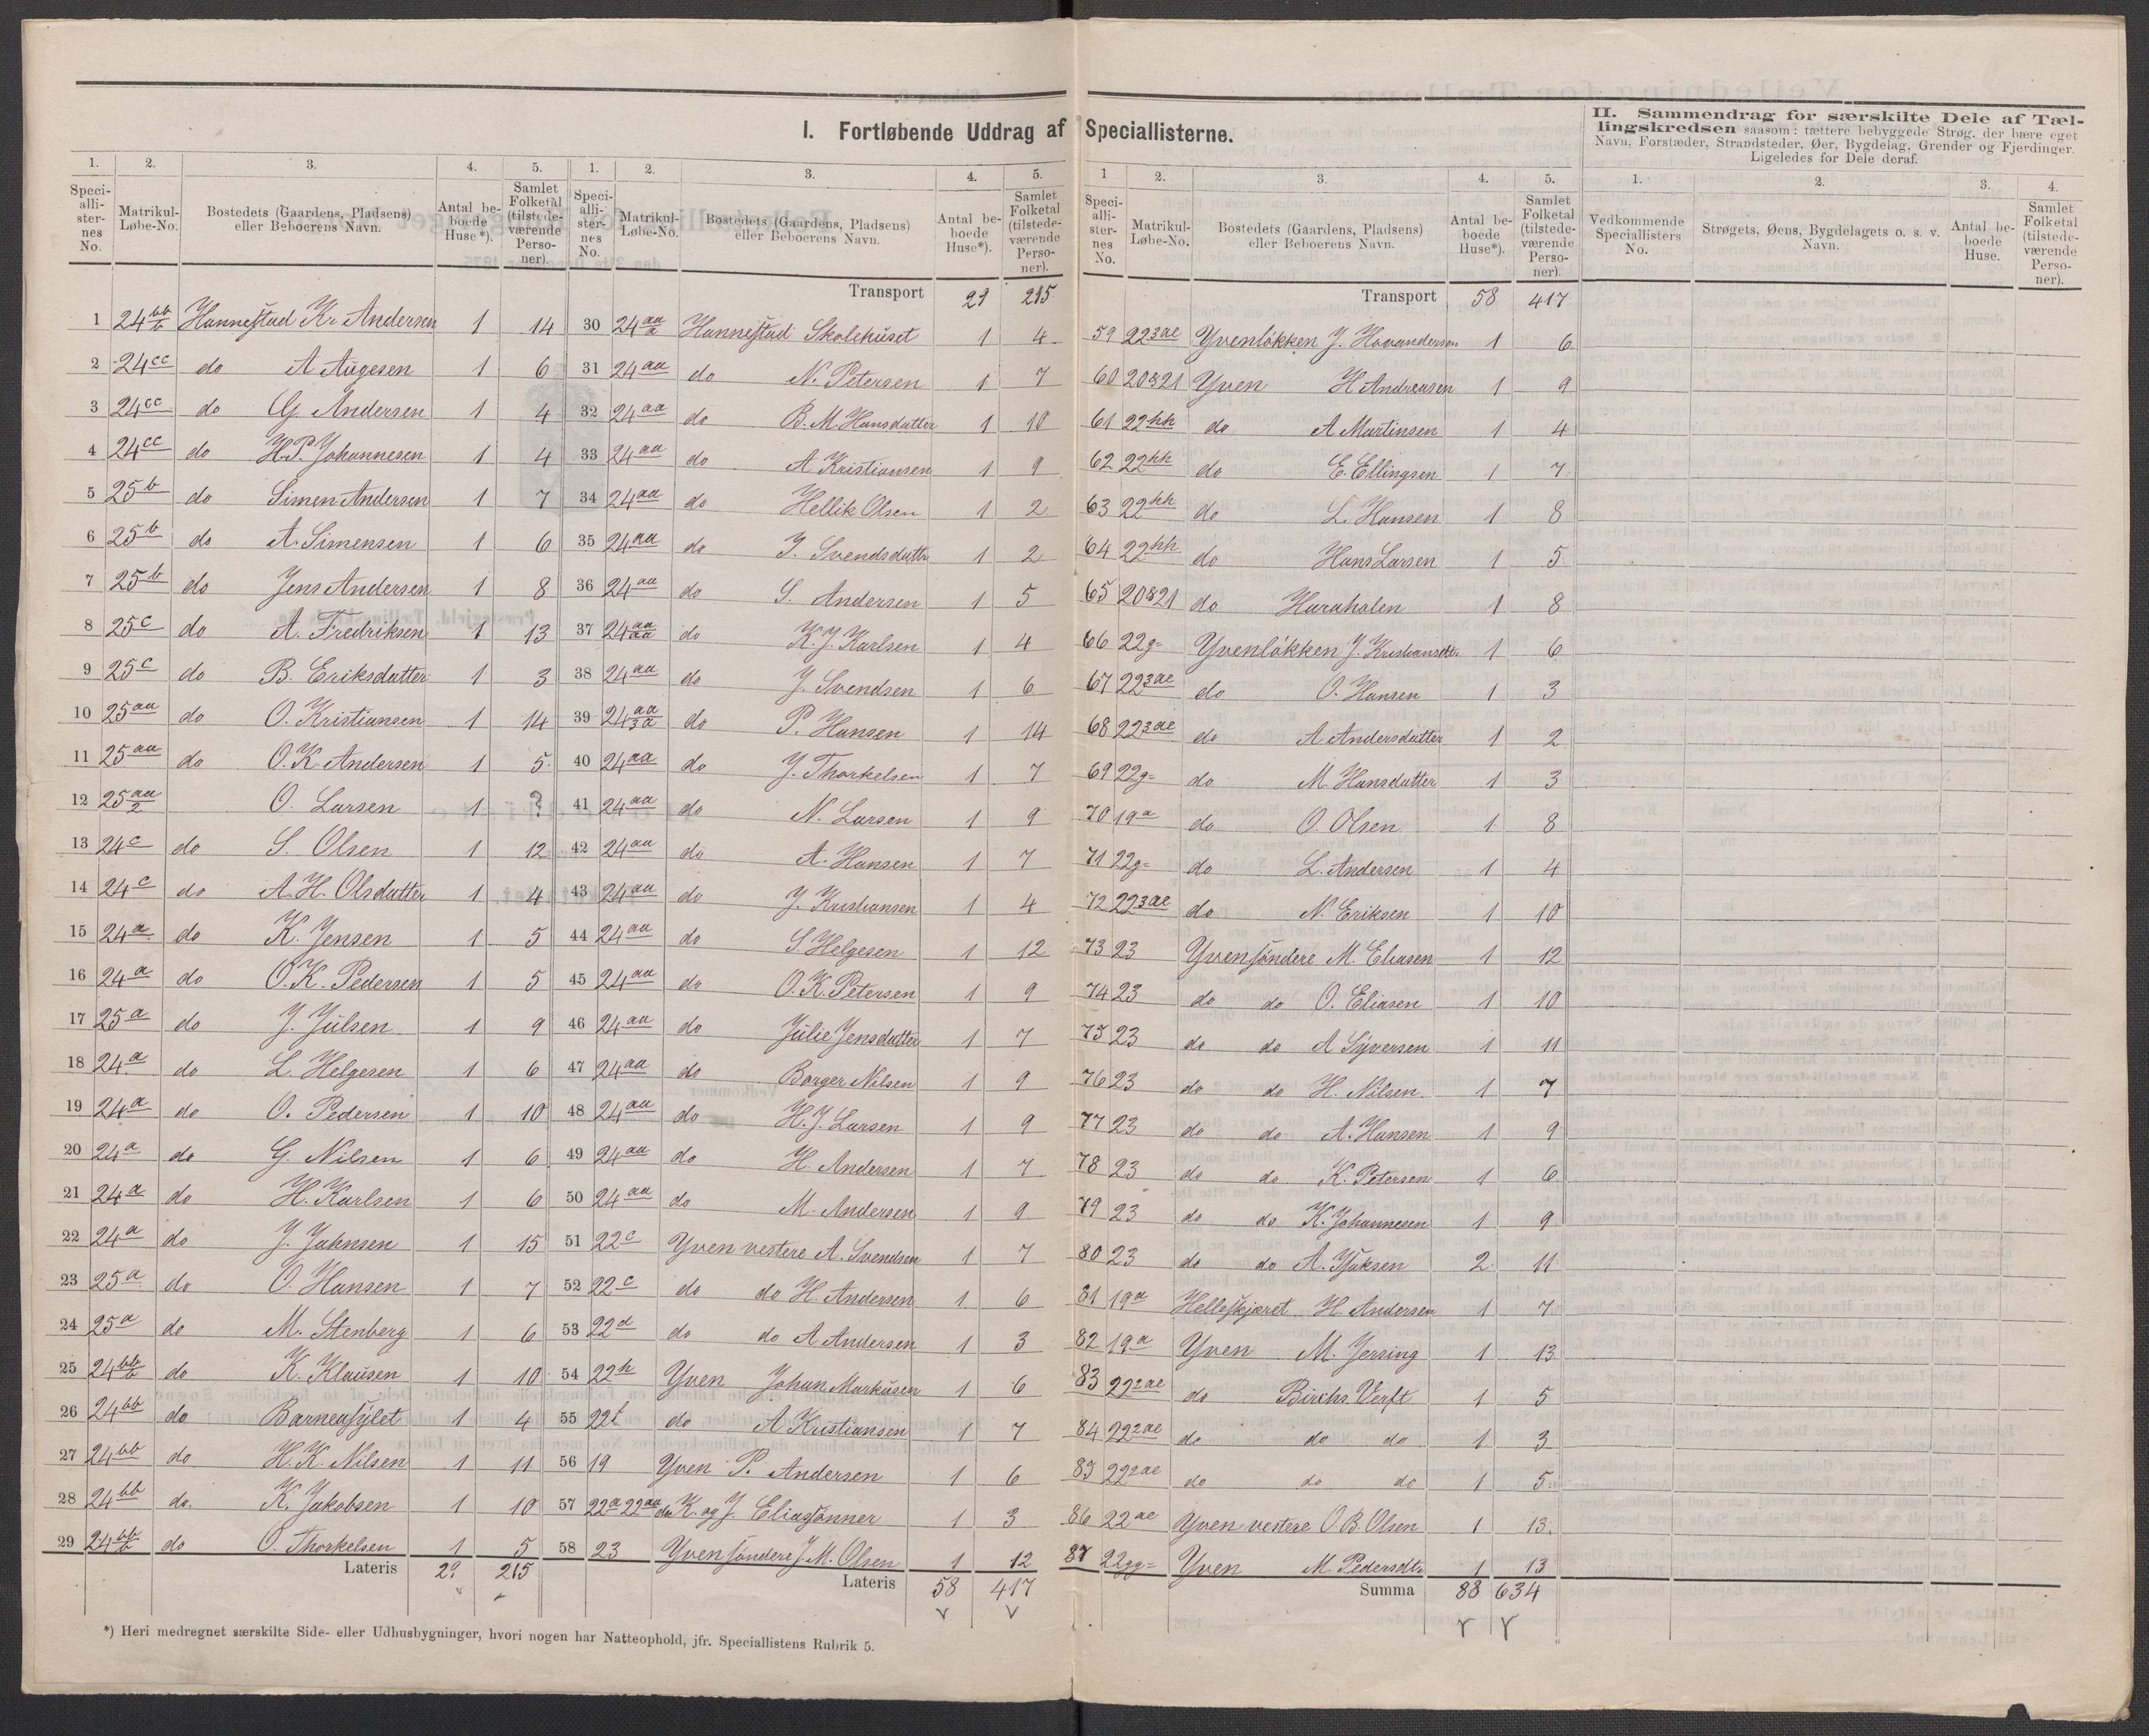 I. Fortløbende Uddrag af Speciallisterne.
1. 2. 3. 4. 5.
Speciallisternes No. Matrikul-Løbe-No. Bostedets (Gaardens, Pladsens) eller Beboerens Navn. Antal beboede Huse*). Samlet Folketal (tilstedeværende Personer).
1 24 bb/b Hannestad Kr. Andersen 1 14
2 24cc do A Augesen 1 6
3 24cc do G Andersen 1 4
4 24cc do H.P. Johannesen 1 4
5 25b do Simen Andersen 1 7
6 25b do A. Simensen 1 6
7 25b do Jens Andersen 1 8
8 25c do A. Fredriksen 1 13
9 25c do B. Eriksdatter 1 3
10 25aa do O. Kristiansen 1 14
11 25aa do O.K. Andersen 1 5
12 25 aa/2 O. Larsen 1 ?
13 24c do S. Olsen 1 12
14 24c do A.H. Olsdatter 1 4
15 24a do K. Jensen 1 5
16 24a do O.K. Pedersen 1 5
17 25a do J. Julsen 1 9
18 24a do L. Helgesen 1 6
19 24a do O. Pedersen 1 10
20 24a do G. Nilsen 1 6
21 24a do H. Karlsen 1 6
22 24a do J. Jahnsen 1 15
23 25a do O. Hansen 1 7
24 25a do M. Stenberg 1 6
25 24 bb/b do K. Klausen 1 10
26 24bb do Barneasylet 1 4
27 24bb do H.K. Nilsen 1 11
28 24bb do. K. Jakobsen 1 10
29 24 bb/b do O. Thorkelsen 1 5
Lateris 29 215
1. 2. 3. 4. 5.
Speciallisternes No. Matrikul-Løbe-No. Bostedets (Gaardens, Pladsens) eller Beboerens Navn. Antal beboede Huse*). Samlet Folketal (tilstedeværende Personer).
Transport 29 215
30 24 aa/a Hannestad Skolehuset 1 4
31 24aa do N. Petersen 1 7
32 24aa do B.M. Hansdatter 1 10
33 24aa do A Kristiansen 1 9
34 24aa do Hellik Olsen 1 2
35 24aa do J. Svendsdattr 1 2
36 24aa do S. Andersen 1 5
37 24 aa/aa do K.J. Karlsen 1 4
38 24aa do J. Svendsen 1 6
39 24 aa/3a do P. Hansen 1 14
40 24aa do J. Thorkelsen 1 7
41 24aa do N. Larsen 1 9
42 24aa do A. Hansen 1 7
43 24aa do J. Kristiansen 1 4
44 24aa do S Helgesen 1 12
45 24aa do O.K. Petersen 1 9
46 24aa do Julie Jensdatter 1 7
47 24aa do Borger Nilsen 1 9
48 24aa do H.J. Larsen 1 9
49 24aa do H. Andersen 1 7
50 24aa do M. Andersen 1 9
51 22c Yven vestere A. Svendsen 1 7
52 22c do do H. Andersen 1 6
53 22d do do A Andersen 1 3
54 22h Yven Johan Markusen 1 6
55 22f do A Kristiansen 1 7
56 19 Yven P. Andersen 1 6
57 22a 22aa do K. og J. Eliassønner 1 3
58 23 Yven søndere J M. Olsen 1 12
Lateris 58 417
1 2. 3. 4. 5.
Speciallisternes No. Matrikul-Løbe-No. Bostedets (Gaardens, Pladsens) eller Beboerens Navn. Antal beboede Huse*). Samlet Folketal (tilstedeværende Personer).
Transport 58 417
59 223ae Yvenløkken J. Havandersen 1 6
60 20&21 Yven H Andreasen 1 9
61 22hh do A Martinsen 1 4
62 22hh do E. Ellingsen 1 7
63 22hh do L. Hansen 1 8
64 22hh do Hans Larsen 1 5
65 20&21 do Haraholen 1 8
66 22g= Yvenløkken J. Kristiansdtr. 1 6
67 223ae do O. Hansen 1 3
68 223ae do A Andersdatter 1 2
69 22g= do M. Hansdatter 1 3
70 19a do O. Olsen 1 8
71 22g= do L. Andersen 1 4
72 223ae do N. Eriksen 1 10
73 23 Yven søndere M. Eliasen 1 12
74 23 do do O. Eliasen 1 10
75 23 do do A Syversen 1 11
76 23 do do H. Nilsen 1 7
77 23 do do A. Hansen 1 9
78 23 do do K. Petersen 1 6
79 23 do do K. Johannesen 1 9
80 23 do do A. Isaksen 2 11
81 19a Helleskjæret H Andersen 1 7
82 19a Yven M. Jersing 1 13
83 222ae do Birchs Verft 1 5
84 222ae do do do 1 3
85 222ae do do do 1 5
86 22ae Yven vestere O.B. Olsen 1 13.
87 22gg= Yven M. Pedersdtr. 1 13
Summa 88 634
II. Sammendrag for særskilte Dele af Tællingskredsen saasom: tættere bebyggede Strøg, der bære eget Navn, Forstæder, Strandsteder, Øer, Bygdelag, Grender og Fjerdinger. Ligeledes for Dele deraf.
1. 2. 3. 4.
Vedkommende Speciallisters No. Strøgets, Øens, Bygdelagets o. s. v. Navn. Antal beboede Huse. Samlet Folketal (tilstedeværende Personer).
*) Heri medregnet særskilte Side- eller Udhusbygninger, hvori nogen har Natteophold, jfr. Speciallistens Rubrik 5.